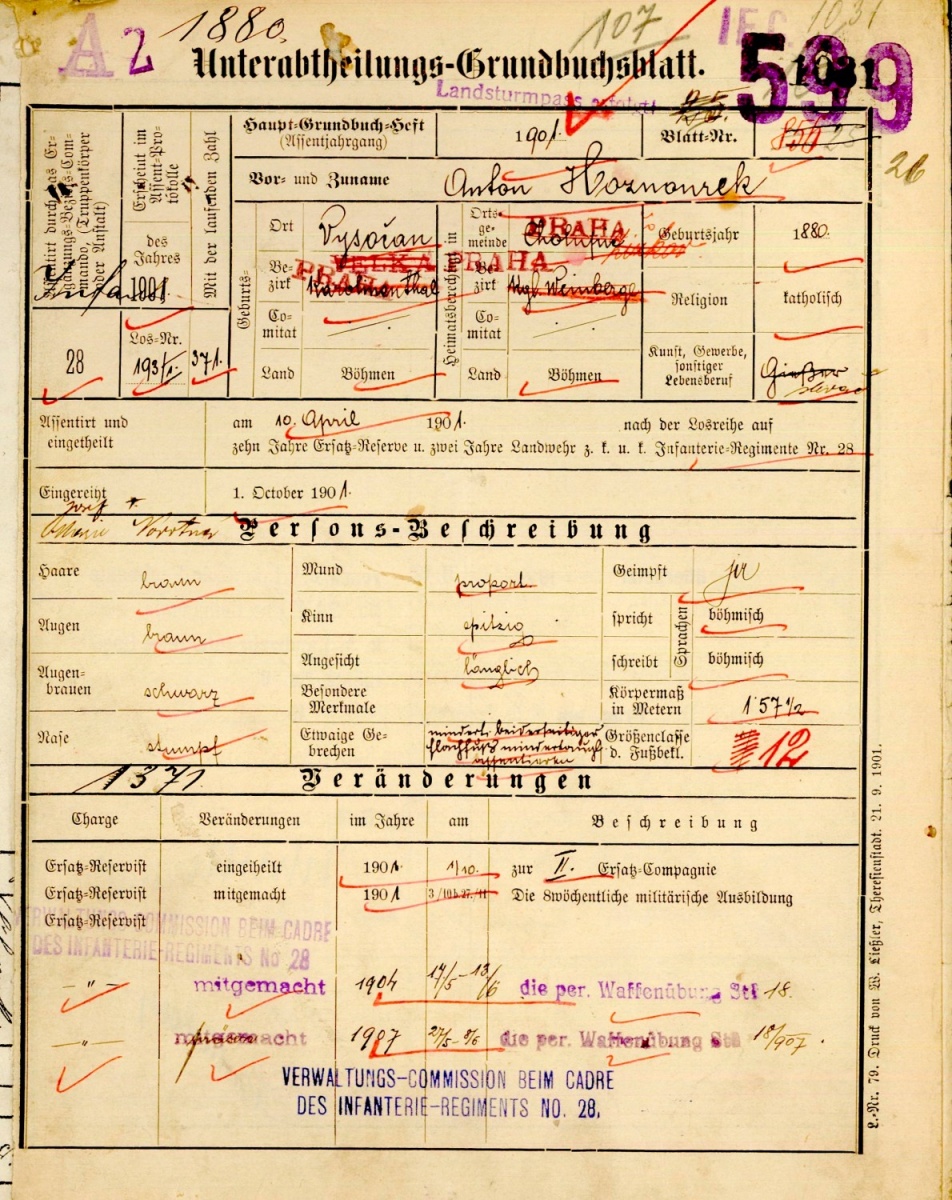 A 2
1880.
107
1031
Unterabtheilungs-Grundbuchsblatt.
599
1031
Landsturmpass
Haupt-Grundbuch-Heft
(Assentjahrgang)
1901
Blatt-Nr.
856 28
26
Vor- und Zuname
Anton Hoznourek
Assentirt durch das Ergänzungs-Bezirks-Commando, (Truppenkörper oder Anstalt)
28
Erscheint im Assent-Protokolle
des Jahres
1901
Los-Nr.
193/I.
Mit der laufenden Zahl
371.
Geburts-
Ort
Vysočan
VELKÁ PRAHA
Bezirk
Karolinenthal
PRAHA
Comitat
Land
Böhmen
Heimatsberechtigt in
Ortsgemeinde
PRAHA
Bezirk
Kgl. Weinberge
Comitat
Land
Böhmen
Geburtsjahr
1880.
Religion
katholisch
Kunst, Gewerbe, sonstiger Lebensberuf
Gießer
Assentirt und eingetheilt
am 10. April 1901. nach der Losreihe auf
zehn Jahre Ersatz-Reserve u. zwei Jahre Landwehr z. k. u. k. Infanterie-Regimente Nr. 28
Eingereiht
1. October 1901.
Persons-Beschreibung
Haare
braun
Mund
proport.
Geimpft
ja
Augen
braun
Kinn
spitzig
spricht
Sprachen
böhmisch
Augenbrauen
schwarz
Angesicht
länglich
schreibt
böhmisch
Besondere Merkmale
Körpermaß in Metern
1·57 1/2
Nase
stumpf
Etwaige Gebrechen
mindert. beiderseitiger
Flachfuß mindertauch.
assentieren
Größenclasse d. Fußbekl.
12
1371.
Veränderungen
Charge
Veränderungen
im Jahre
am
Beschreibung
Ersatz-Reservist eingeiheilt 1901. 1/10. zur II. Ersatz-Compagnie
Ersatz-Reservist mitgemacht 1901 Die 8wöchentliche militärische Ausbildung
Ersatz-Reservist
VERWALTUNGS-COMMISSION BEIM CADRE
DES INFANTERIE-REGIMENTS No 28
-"- mitgemacht 1904 17/5-13/6 die per. Waffenübung 18.
-"- mitgemacht 1907 27/5- 8/6 die per. Waffenübung 18/907.
VERWALTUNGS-COMMISSION BEIM CADRE
DES INFANTERIE-REGIMENTS NO. 28.
L.-Nr. 79. Druck von W. Ließler, Theresienstadt. 21. 9. 1901.